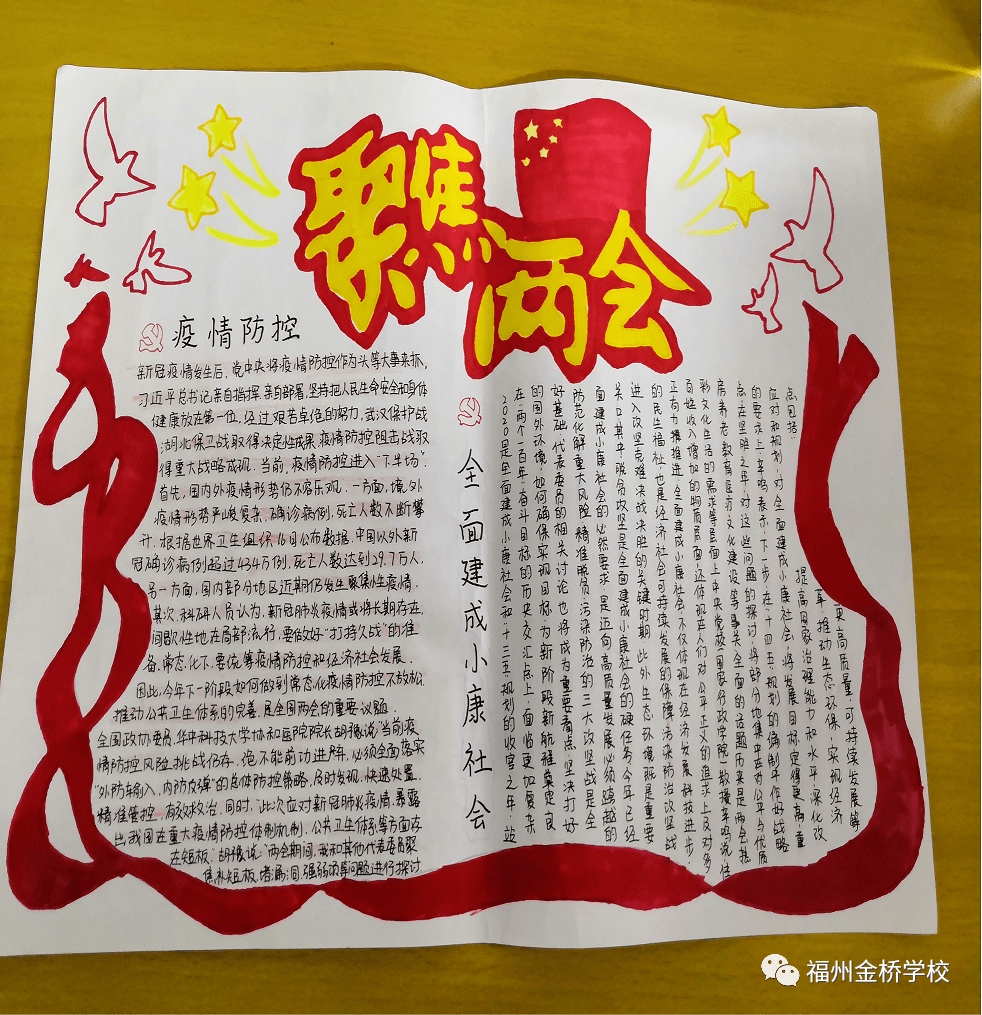 聚焦两会
疫情防控
新冠疫情发生后，党中央将疫情防控作为头等大事来抓，
习近平总书记亲自指挥、亲自部署，坚持把人民生命安全和身体
健康放在第一位，经过艰苦卓绝的努力，武汉保护战
湖北保卫战取得决定性成果，疫情防控阻击战取
得重大战略成现。当前，疫情防控进入“下半场”.
首先，国内外疫情形势仍不容乐观.一方面，境外
疫情形势严峻复杂，确诊病例，死亡人数不断攀
升，根据世界卫生组织16日公布数据，中国以外新
冠确诊病例超过434万例，死亡人数达到29.7万人，
另一方面，国内部分地区近期仍发生聚集性疫情.
其次，科研人员认为，新冠肺炎疫情或将长期存在，
间歇性地在局部流行，要做好“打持久战”的准
备，常态化下，要统筹疫情防控和经济社会发展.
因此，今年下一阶段如何做到常态化疫情防控不放松，
推动公共卫生体系的完善，是全国两会的重要议题.
全国政协委员，华中科技大学协和医院院长胡豫说“当前疫
情防控风险挑战仍存，绝不能前功进弃，必须全面落实
“外防输入，内防反弹”的总体防控策略，及时发现，快速处置，
精准管控，有效救治，同时，“此次应对新冠肺炎疫情，暴露
出我国在重大疫情防控体制机制、公共卫生体系等方面存
在短板.”胡豫说：“两会期间，我和其他代表委员聚
焦补短板、堵漏洞、强弱项等问题进行探讨
全面建成小康社会
2020是全面建成小康社会和“十三五”规划的收官之年，站
在“两个一百年”奋斗目标的历史交汇点上，面临更加复杂
的国外环境，如何确保实现目标，为新阶段新航程奠定良
好基础，代表委员的相关讨论也将成为重要看点，坚决打好
防范化解重大风险、精准脱贫、污染防治的三大攻坚战是全
面建成小康社会的必然要求，是迈向高质量发展必须跨越的
关口，其中脱贫攻坚是全面建成小康社会的硬任务，今年已经
进入攻坚克难决战决胜的关键时期，此外，生态环境既是重要
的民生福祉，也是经济社会可持续发展的保障，污染防治攻坚战
正有力推进，全面建成小康社会，不仅体现在经济发展、科技进步，
百姓收入增加的物质层面，还体现在人们对公平正义的追求上及对多
彩文化生活的需求等层面上，中央党校(国家行政学院)教授辛鸣说，住
房、养老、教育、医疗、文化建设等事关全面的话题，历来是两会热
点，在坚胜之年，对这些问题的探讨，将部分地集中在对公平与优质
的要求上，辛鸣表示，下一步在“十四五”规划的编制中作好战略
应对和规划，对全面建成小康社会，将发展目标定得更高，重
点回括：
提高国家治理能力和水平，深化改
革，推动生态环保，实现经济
更高质量，可持续发展等
福州金桥学校